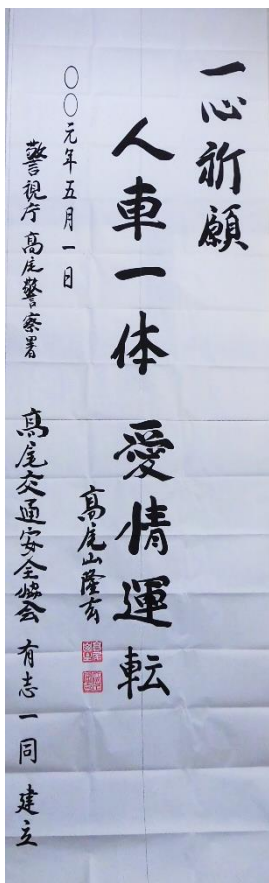 一心祈願
人車一体 愛情運転
高尾山隆玄
〇〇元年五月一日
警視庁 高尾警察署 高尾交通安全協会 有志一同 建立